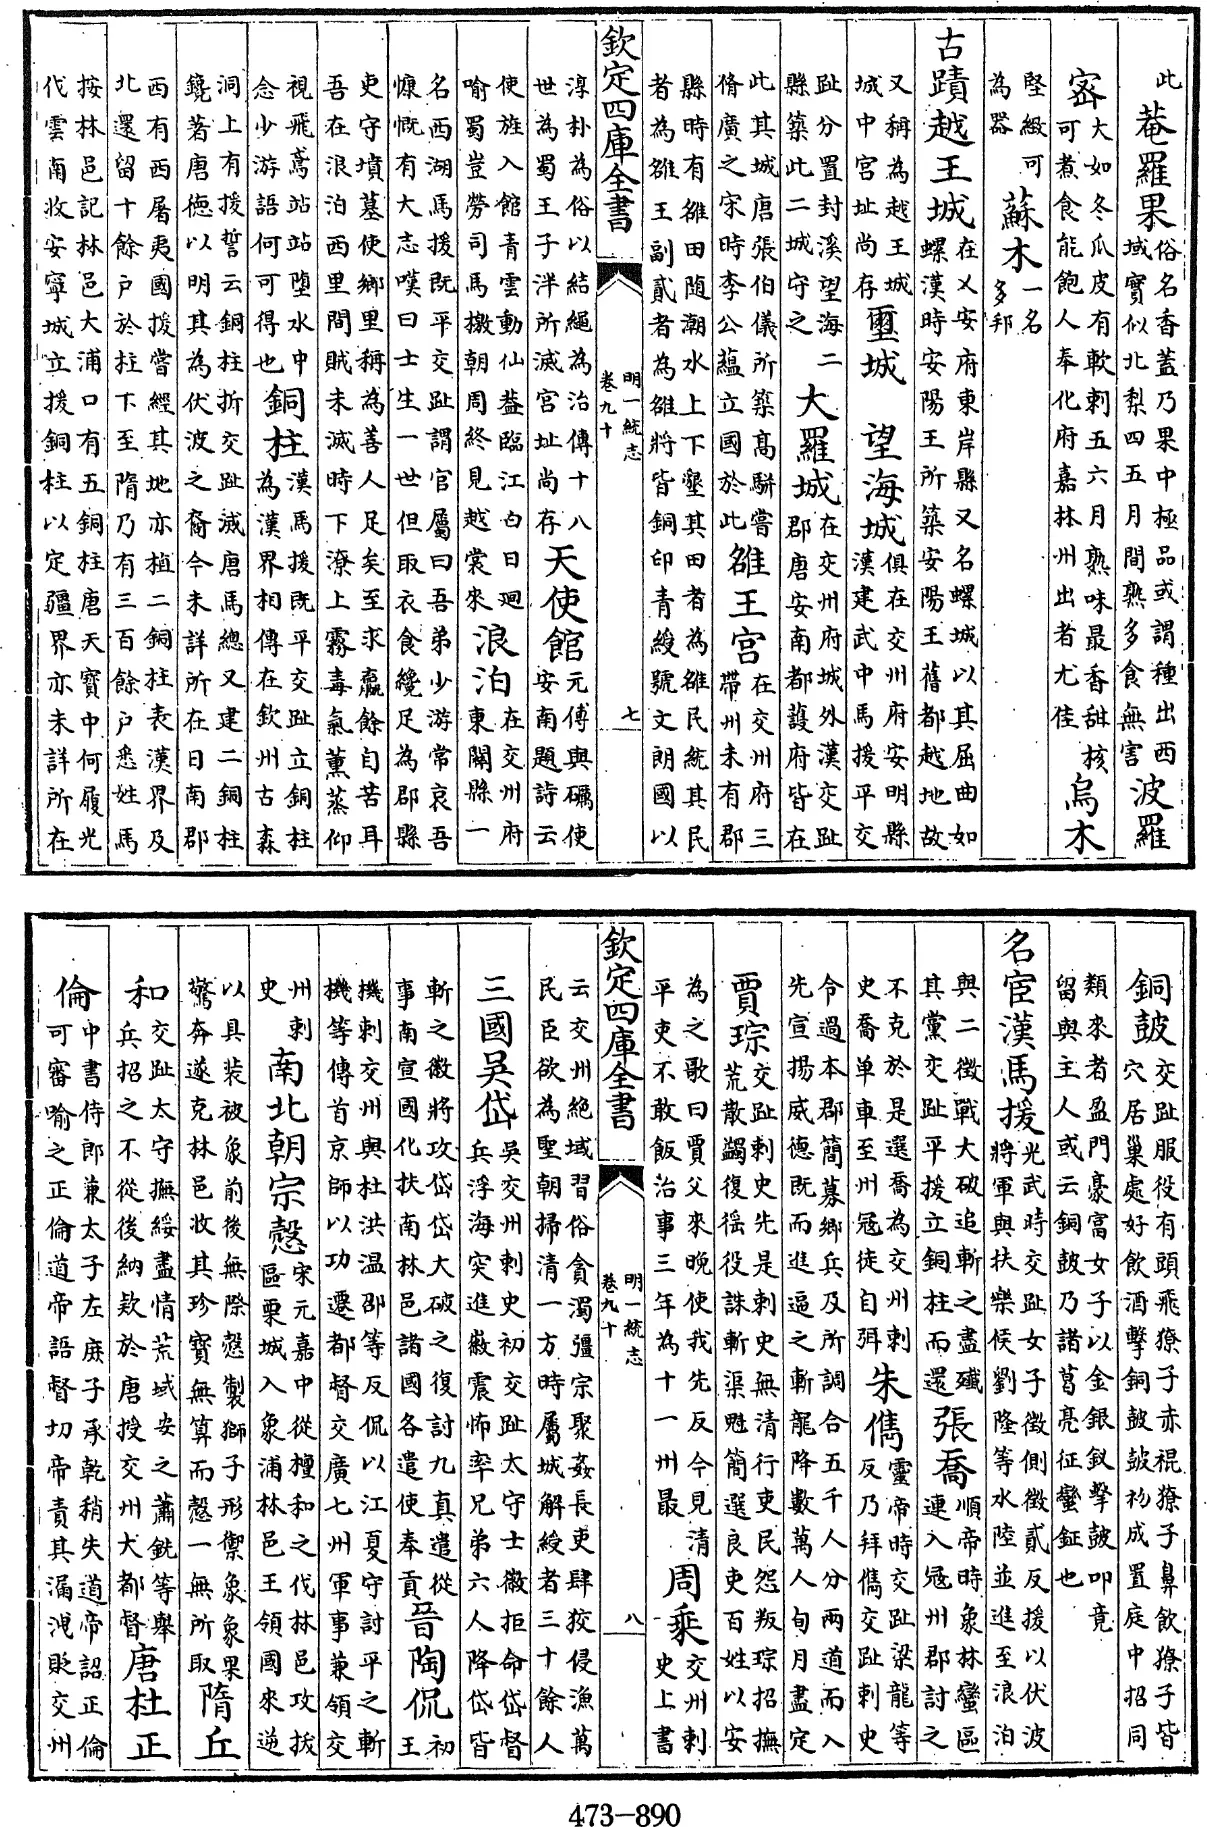 此菴羅果俗名香蓋乃果中極品或謂種出西
域實似北梨四五月間熟多食無害波羅
宻大如冬瓜皮有軟刺五六月熟味最香甜核
可煮食能飽人奉化府嘉林州出者尤佳烏木
堅緻可
為器蘇木一名
多邦
古蹟越王城在乂安府東岸縣又名螺城以其屈曲如
螺漢時安陽王所築安陽王舊都越地故
又稱為越王城
城中宫址尚存壐城　望海城俱在交州府安明縣
漢建武中馬援平交
趾分置封溪望海二
縣築此二城守之大羅城在交州府城外漢交趾
郡唐安南都護府皆在
此其城唐張伯儀所築髙駢嘗
脩廣之宋時李公藴立國於此雒王宫在交州府三
帶州未有郡
縣時有雒田随潮水上下墾其田者為雒民統其民
者為雒王副貳者為雒將皆銅印青綬號文朗國以
欽定四庫全書
明一統志
卷九十
七
淳朴為俗以結繩為治傳十八
世為蜀王子泮所滅宫址尚存天使館元傅與礪使
安南題詩云
使旌入館青雲動仙葢臨江白日廻
喻蜀豈勞司馬檄朝周終見越裳來浪泊在交州府
東關縣一
名西湖馬援既平交趾謂官屬曰吾弟少游常哀吾
慷慨有大志嘆曰士生一世但取衣食纔足為郡縣
吏守墳墓使鄉里稱為善人足矣至求嬴餘自苦耳
吾在浪泊西里間賊未滅時下潦上霧毒氣薰蒸仰
視飛鳶站站墮水中
念少游語何可得也銅柱漢馬援既平交趾立銅柱
為漢界相傳在欽州古森
洞上有援誓云銅柱折交趾滅唐馬總又建二銅柱
鐫著唐德以明其為伏波之裔今未詳所在日南郡
西有西屠夷國援嘗經其地亦植二銅柱表漢界及
北還留十餘户於柱下至隋乃有三百餘户悉姓馬
按林邑記林邑大浦口有五銅柱唐天寶中何履光
伐雲南收安寧城立援銅柱以定疆界亦未詳所在
銅鼓交趾服役有頭飛獠子赤裩獠子鼻飲獠子皆
穴居巢處好飲酒擊銅鼓鼓初成置庭中招同
類來者盈門豪富女子以金銀釵擊鼓叩竟
留與主人或云銅鼓乃諸葛亮征蠻鉦也
名宦漢馬援光武時交趾女子徵側徵貳反援以伏波
將軍與扶樂侯劉隆等水陸並進至浪泊
與二徵戰大破追斬之盡殱
其黨交趾平援立銅柱而還張喬順帝時象林蠻區
連入冦州郡討之
不克於是選喬為交州刺
史喬单車至州冦徒自弭朱儁靈帝時交趾梁龍等
反乃拜儁交趾刺史
令過本郡簡募鄉兵及所調合五千人分兩道而入
先宣揚威德既而進逼之斬龍降數萬人旬月盡定
賈琮交趾刺史先是刺史無清行吏民怨叛琮招撫
荒散蠲復徭役誅斬渠魁簡選良吏百姓以安
為之歌曰賈父來晚使我先反今見清
平吏不敢飯治事三年為十一州最周乘交州刺
史上書
欽定四庫全書
明一統志
卷九十
八
云交州絶域習俗貪濁彊宗聚姦長吏肆狡侵漁萬
民臣欲為聖朝掃清一方時屬城解綬者三十餘人
三國吳岱吳交州刺史初交趾太守士徽拒命岱督
兵浮海突進徽震怖率兄弟六人降岱皆
斬之徽將攻岱岱大破之復討九真遣從
事南宣國化扶南林邑諸國各遣使奉貢晉陶侃初
王
機刺交州與杜洪温邵等反侃以江夏守討平之斬
機等傳首京師以功遷都督交廣七州軍事兼領交
州刺
史南北朝宗慤宋元嘉中從檀和之伐林邑攻拔
區粟城入象浦林邑王領國來逆
以具装被象前後無際慤製獅子形禦象象果
驚奔遂克林邑收其珍寶無算而慤一無所取隋丘
和交趾太守撫綏盡情荒域安之蕭銑等舉
兵招之不從後納欵於唐授交州大都督唐杜正
倫中書侍郎兼太子左庶子承乾稍失道帝詔正倫
可審喻之正倫道帝語督切帝責其漏洩貶交州
473-890